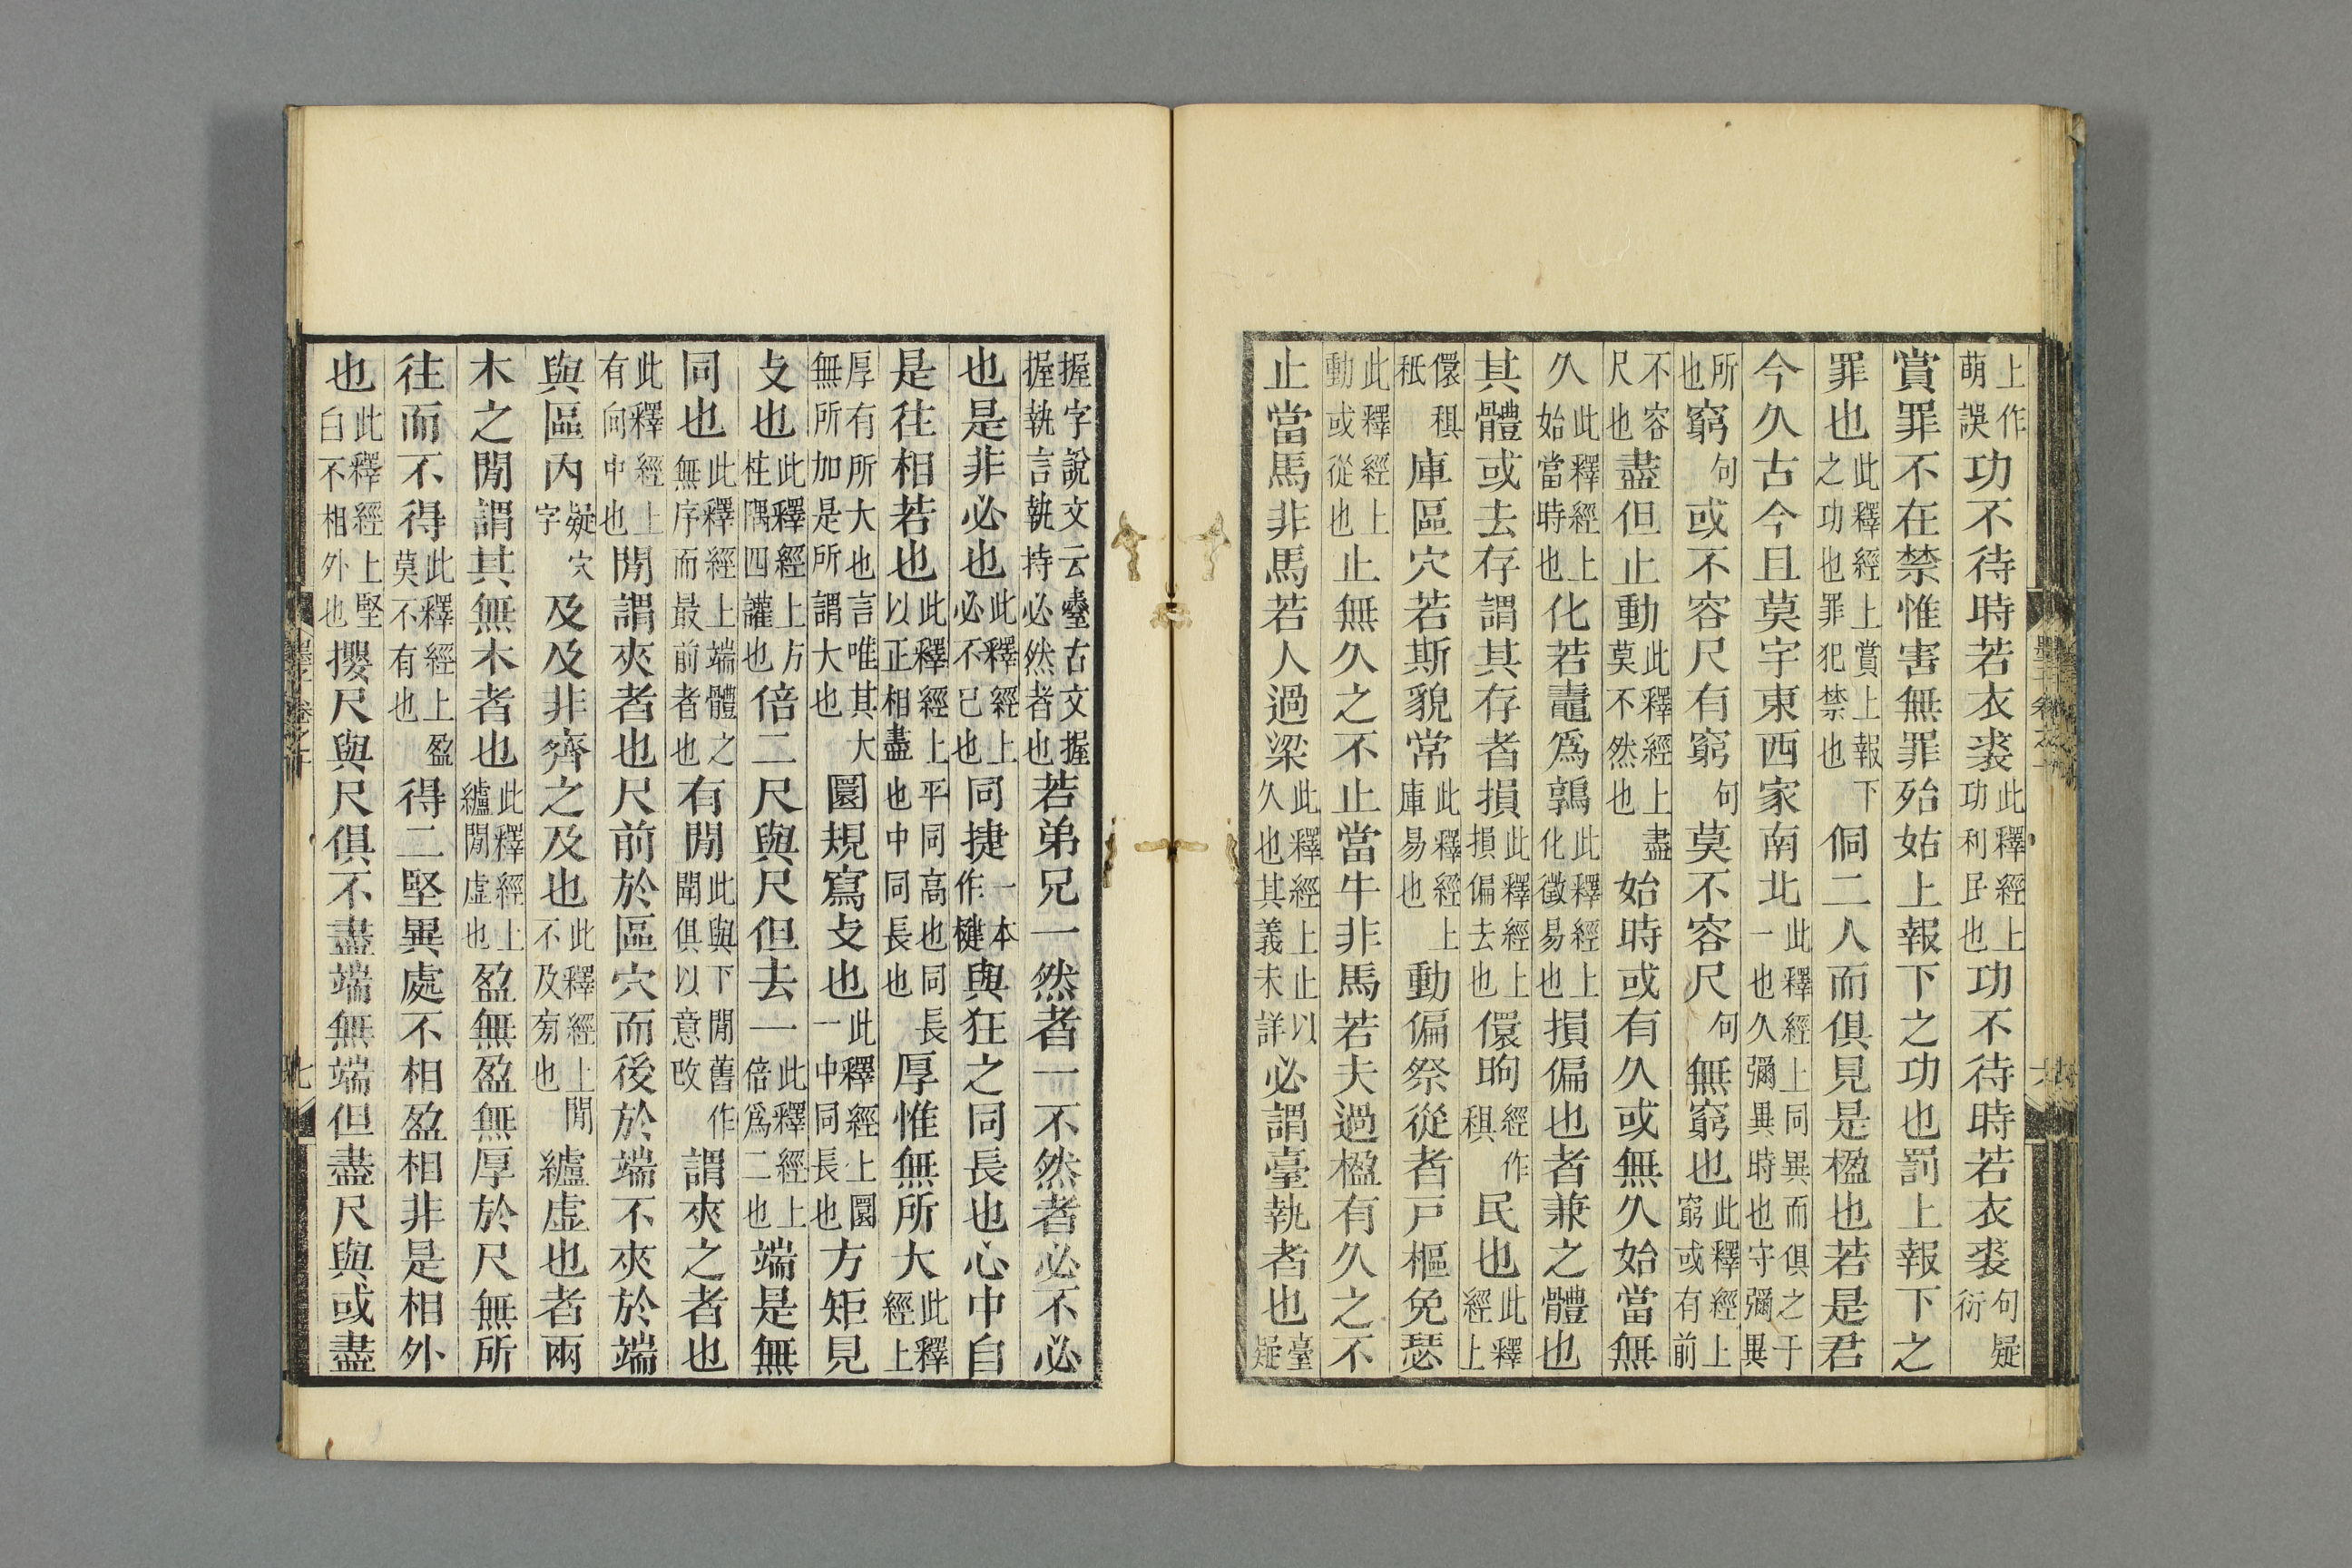 上作萌誤功不待時若衣裘此釋經上功利民也功不待時若衣裘句疑衍
賞罪不在禁惟害無罪殆姑上報下之功也罰上報下之
罪也此釋經上賞上報下之功也罪犯禁也侗二人而俱見是楹也若是君
今久古今且莫宇東西家南北此釋經上同異而俱之于一也久彌異時也守彌異
所也窮句或不容尺有窮句莫不容尺句無窮也此釋經上窮或有前
不容尺也盡但止動此釋經上盡莫不然也始時或有久或無久始當無
久此釋經上始當時也化若鼃爲鶉此釋經上化徵易也損偏也者兼之體也
其體或去存謂其存者損此釋經上損偏去也儇昫經作䄎民也此釋經上
儇䄎秖庫區穴若斯貌常此釋經上庫易也動偏祭從者戸樞免瑟
此釋經上動或從也止無久之不止當牛非馬若夫過楹有久之不
止當馬非馬若人過梁此釋經上止以久也其義未詳必謂臺執者也臺疑
握字說文云𡌬古文握握執言執持必然者也若弟兄一然者一不然者必不必
也是非必也此釋經上必不已也同捷一本作楗與狂之同長也心中自
是往相若也此釋經上平同高也同長以正相盡也中同長也厚惟無所大此釋經上
厚有所大也言唯其大無所加是所謂大也圜規寫攴也此釋經上圜一中同長也方矩見
攴也此釋經上方柱隅四讙也倍二尺與尺但去一此釋經上倍爲二也端是無
同也此釋經上端體之無序而最前者也有閒此與下閒舊作聞俱以意改謂夾之者也
此釋經上有向中也閒謂夾者也尺前於區穴而後於端不夾於端
與區內疑穴字及及非齊之及也此釋經上閒不及㫄也纑虛也者兩
木之閒謂其無木者也此釋經上纑閒虛也盈無盈無厚於尺無所
往而不得此釋經上盈莫不有也得二堅異處不相盈相非是相外
也此釋經上堅白不相外也攖尺與尺俱不盡端無端但盡尺與或盡